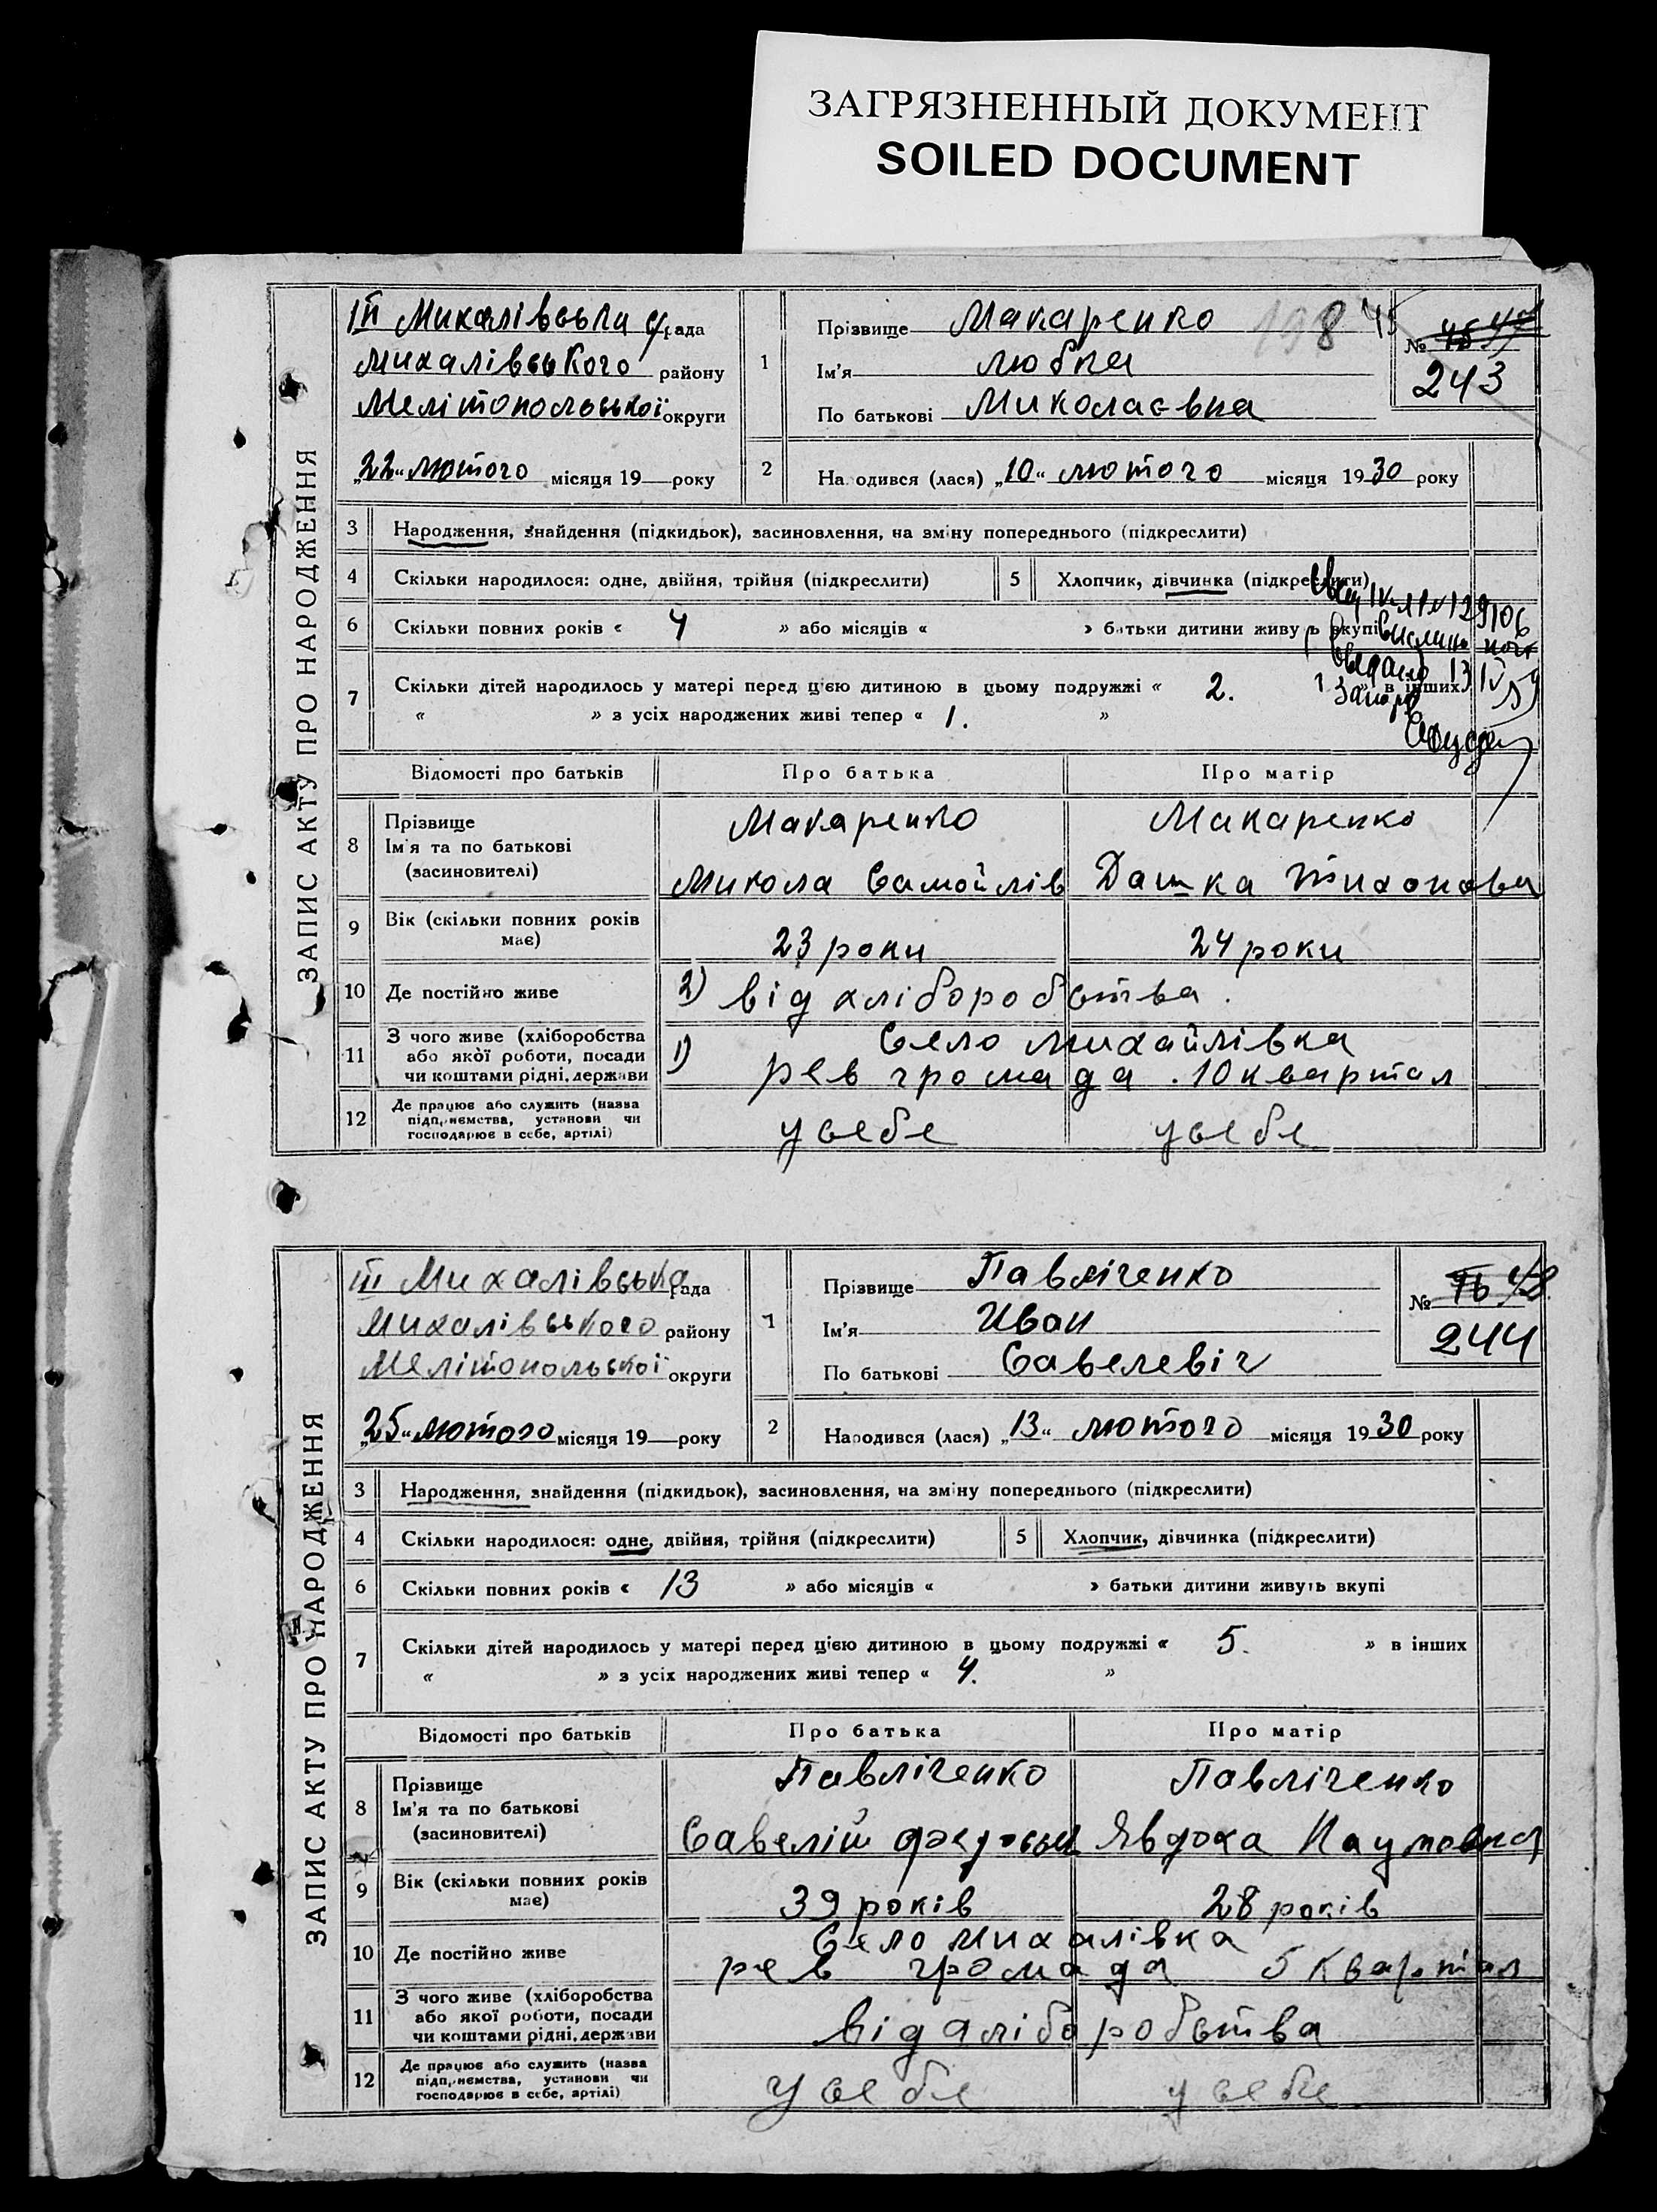 ЗАГРЯЗНЕННЫЙ ДОКУМЕНТ
SOILED DOCUMENT
ЗАПИС АКТУ ПРО НАРОДЖЕННЯ
ІІІ Михалівська рада
Михалівського району
Мелітопольської округи
„22“ лютого місяця 19 року
1
Прізвище Макаренко 198 45
Ім'я Любка
По батькові Миколаєвна
№ 45 47
243
2
На одився (лася) „10“ лютого місяця 1930 року
3 Народження, знайдення (підкидьок), засиновлення, на зміну попереднього (підкреслити)
4 Скільки народилося: одне, двійня, трійня (підкреслити) 5 Хлопчик, дівчинка (підкреслити)
6 Скільки повних років « 4 » або місяців « » батьки дитини живуть вкупі
7 Скільки дітей народилось у матері перед цією дитиною в цьому подружжі « 2. » в інших
« » з усіх народжених живі тепер « 1. »
Відомості про батьків Про батька Про матір
8 Прізвище Макаренко Макаренко
Ім'я та по батькові
(засиновителі) Микола Самойлів Дашка Тихонова
9 Вік (скільки повних років має) 23 роки 24 роки
10 Де постійно живе 2) від хліборобства.
11 З чого живе (хліборобства або якої роботи, посади чи коштами рідні, держави 1) Село Михайлівка
рев громада. 10 квартал
12 Де працює або служить (назва підприємства, установи чи господарює в себе, артілі) у себе у себе
ЗАПИС АКТУ ПРО НАРОДЖЕННЯ
ІІІ Михалівська рада
Михалівського району
Мелітопольської округи
„25“ лютого місяця 19 року
1
Прізвище Павліченко
Ім'я Иван
По батькові Савелевіч
№ 48
244
2
Народився (лася) „13“ лютого місяця 1930 року
3 Народження, знайдення (підкидьок), засиновлення, на зміну попереднього (підкреслити)
4 Скільки народилося: одне, двійня, трійня (підкреслити) 5 Хлопчик, дівчинка (підкреслити)
6 Скільки повних років « 13 » або місяців « » батьки дитини живуть вкупі
7 Скільки дітей народилось у матері перед цією дитиною в цьому подружжі « 5. » в інших
« » з усіх народжених живі тепер « 4. »
Відомості про батьків Про батька Про матір
8 Прізвище Павліченко Павліченко
Ім'я та по батькові
(засиновителі) Савелій Явдоха Наумовна
9 Вік (скільки повних років має) 39 років 28 років
10 Де постійно живе Село Михалівка
рев громада 5 квартал
11 З чого живе (хліборобства або якої роботи, посади чи коштами рідні, держави від хліборобства
12 Де працює або служить (назва підприємства, установи чи господарює в себе, артілі) у себе у себе